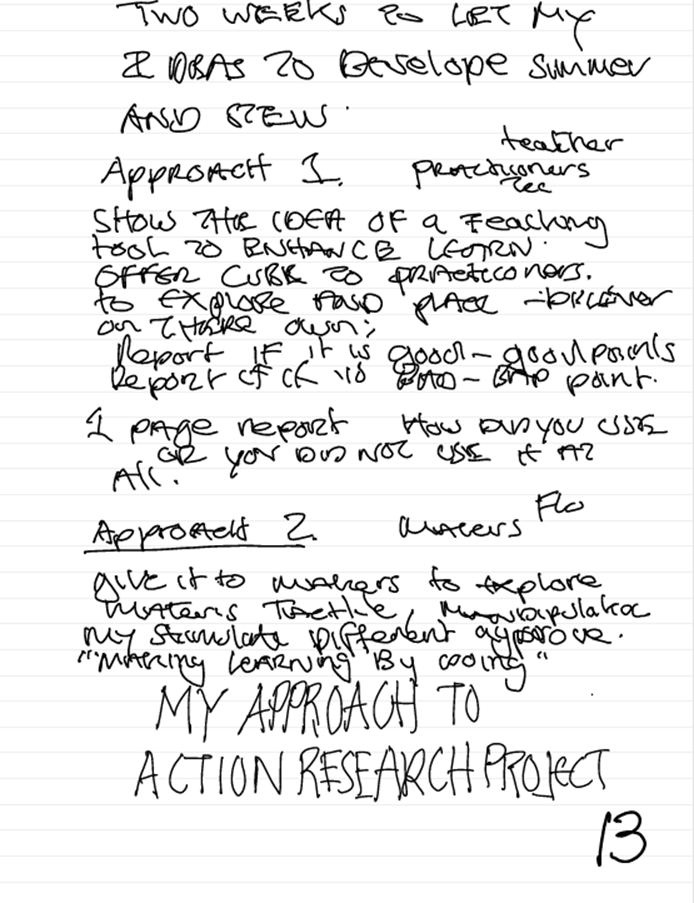 TWO WEEKS TO LET MY
IDEAS TO Develope summer
AND STEW.
teather
APPROACH 1. PRACticoners
SHOW THE IDEA OF a Teaching
tool TO ENHANCE LEARN.
OFFER CUBE TO PRActiconers.
to EXPLORE AND PLACE - DISCOVER
on THERE own;
Report IF it is good - good points
Report if it is BAD - BAD point.
1 PAGE report How DID YOU USE
OR YOU DID NOT USE it AT
All.
APPROACH 2. makers Flo
give it to makers to explore
my stimulate Different
"MAKING LEARNING By doing"
MY APPROACH TO
ACTION RESEARCH PROJECT
13